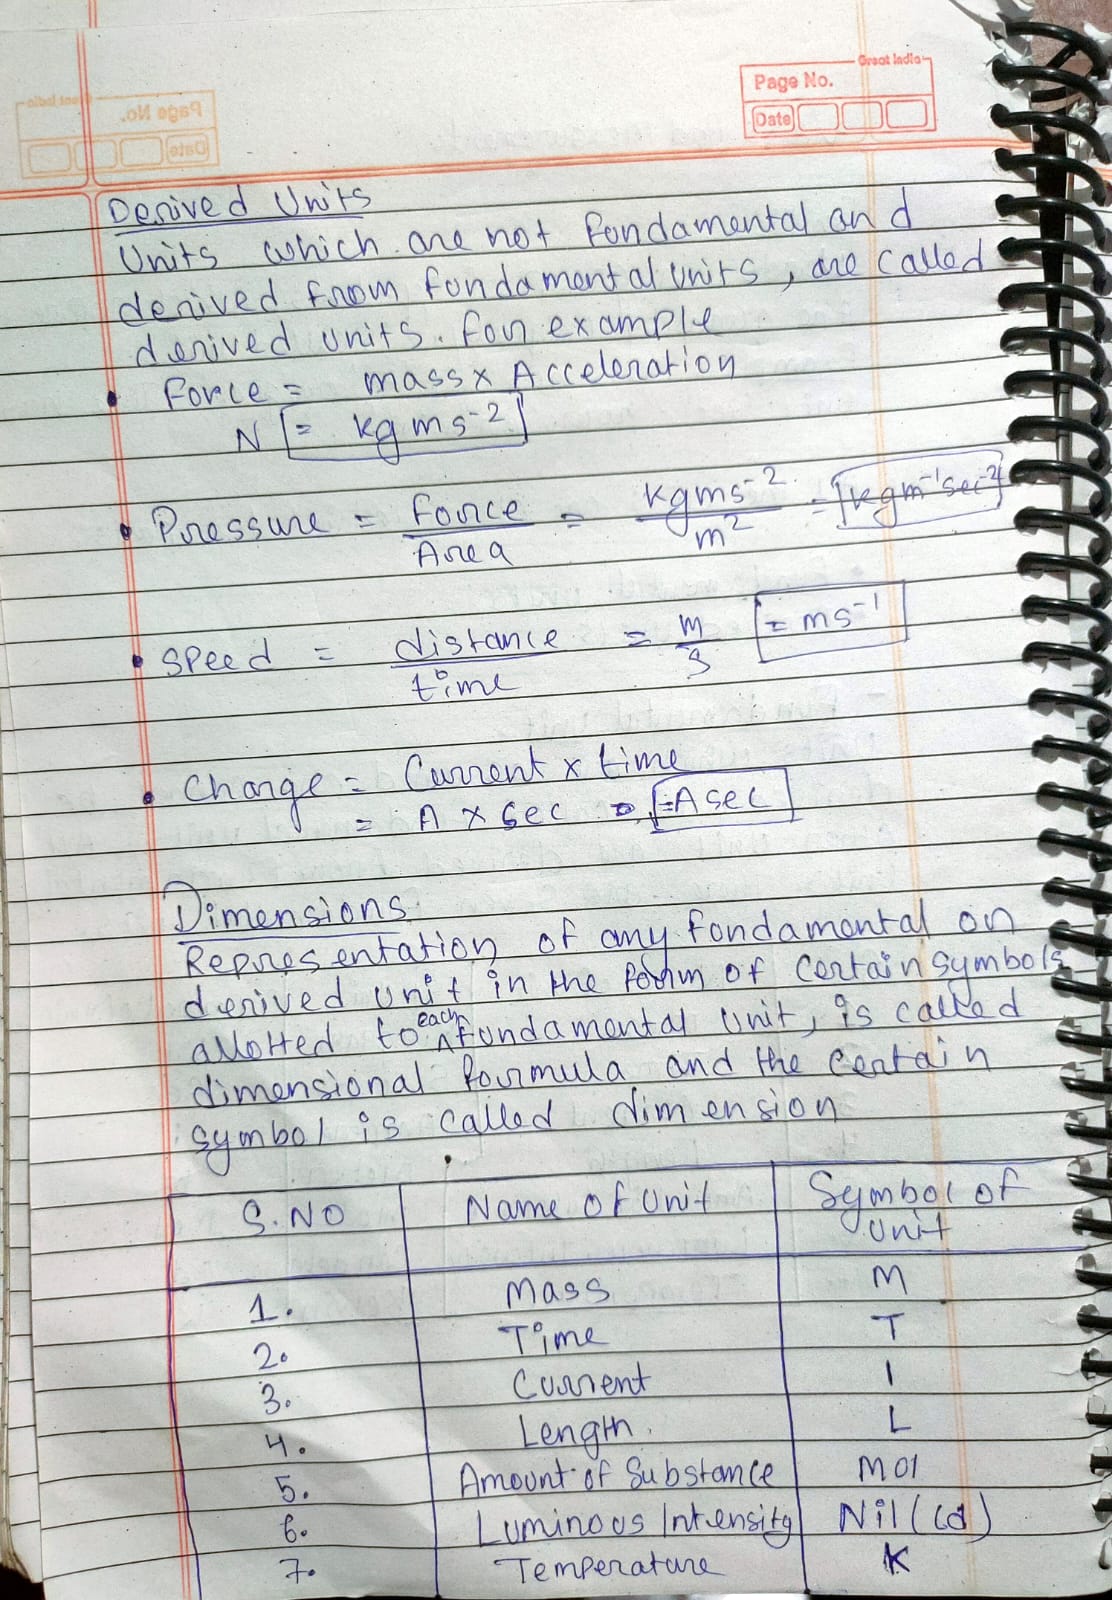 Great India
Page No.
Date
Derived Units
Units which are not fondamental and
derived from fundamental units, are called
derived units. for example
• Force = mass x Acceleration
N = kg ms⁻²
• Pressure = Force/Area = kgms⁻²/m² = kgm⁻¹sec⁻²
• Speed = distance/time = m/s = ms⁻¹
• Charge = Current x time
= A x sec = A sec
Dimensions
Representation of any fondamental or
derived unit in the form of certain symbols
allotted to each fundamental unit, is called
dimensional formula and the certain
symbol is called dimension
S.NO Name of Unit Symbol of
Unit
1. Mass M
2. Time T
3. Current I
4. Length. L
5. Amount of Substance Mol
6. Luminous Intensity Nil (cd)
7. Temperature K